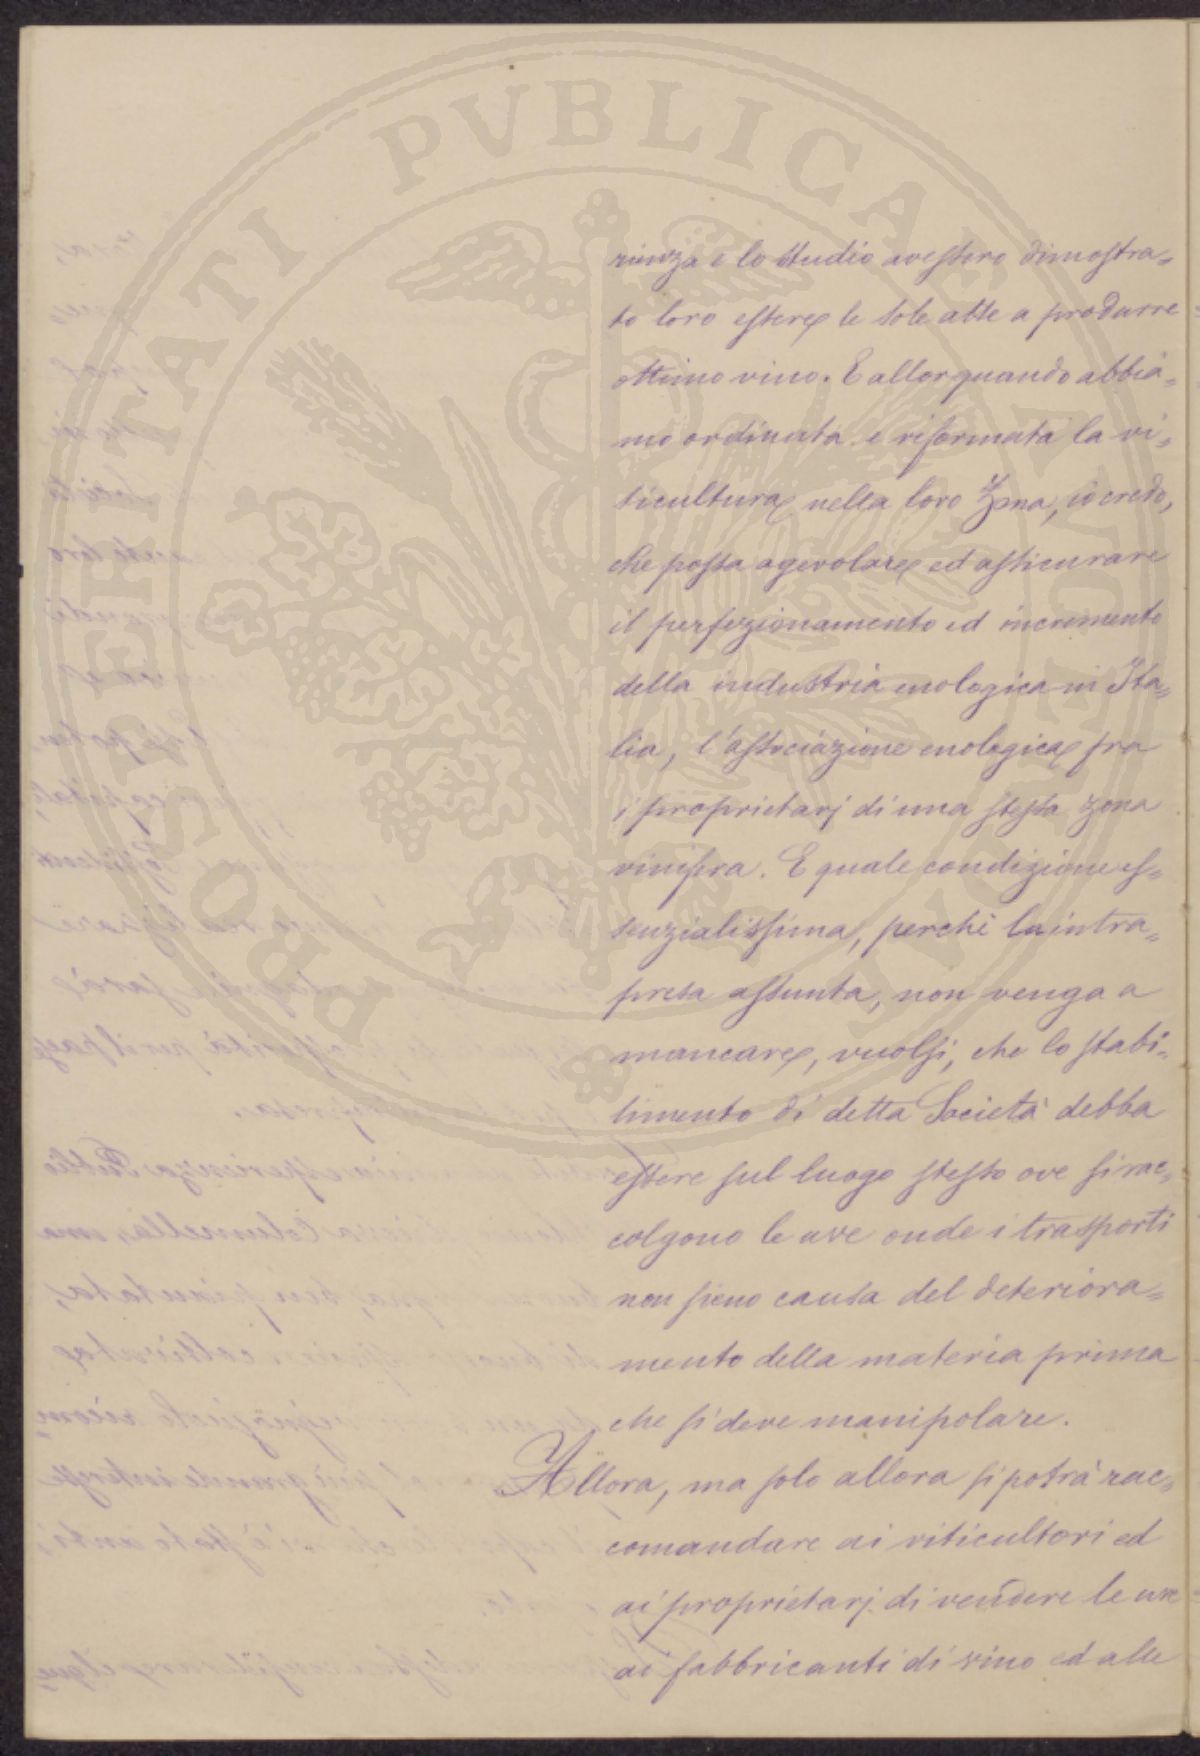 PROSPERITATI PUBLICAE AUGENDAE
rienza e lo studio avessero dimostra=
to loro essere le sole atte a produrre
ottimo vino. E allorquando abbia=
mo ordinata e riformata la vi=
ticultura nella loro Zona, io credo,
che possa agevolare ed assicurare
il perfezionamento ed incremento
della industria enologica in Ita=
lia, l'associazione enologica fra
i proprietarj di una stessa zona
vinifera. E quale condizione es=
senzialissima, perchè la intra=
presa assunta, non venga a
mancare, vuolsi, che lo stabi=
limento di detta Società debba
essere sul luogo stesso ove si rac=
colgono le uve onde i trasporti
non sieno causa del deteriora=
mento della materia prima
che si deve manipolare.
Allora, ma solo allora si potrà rac=
comandare ai viticultori ed
ai proprietarj di vendere le uve
ai fabbricanti di vino ed alle